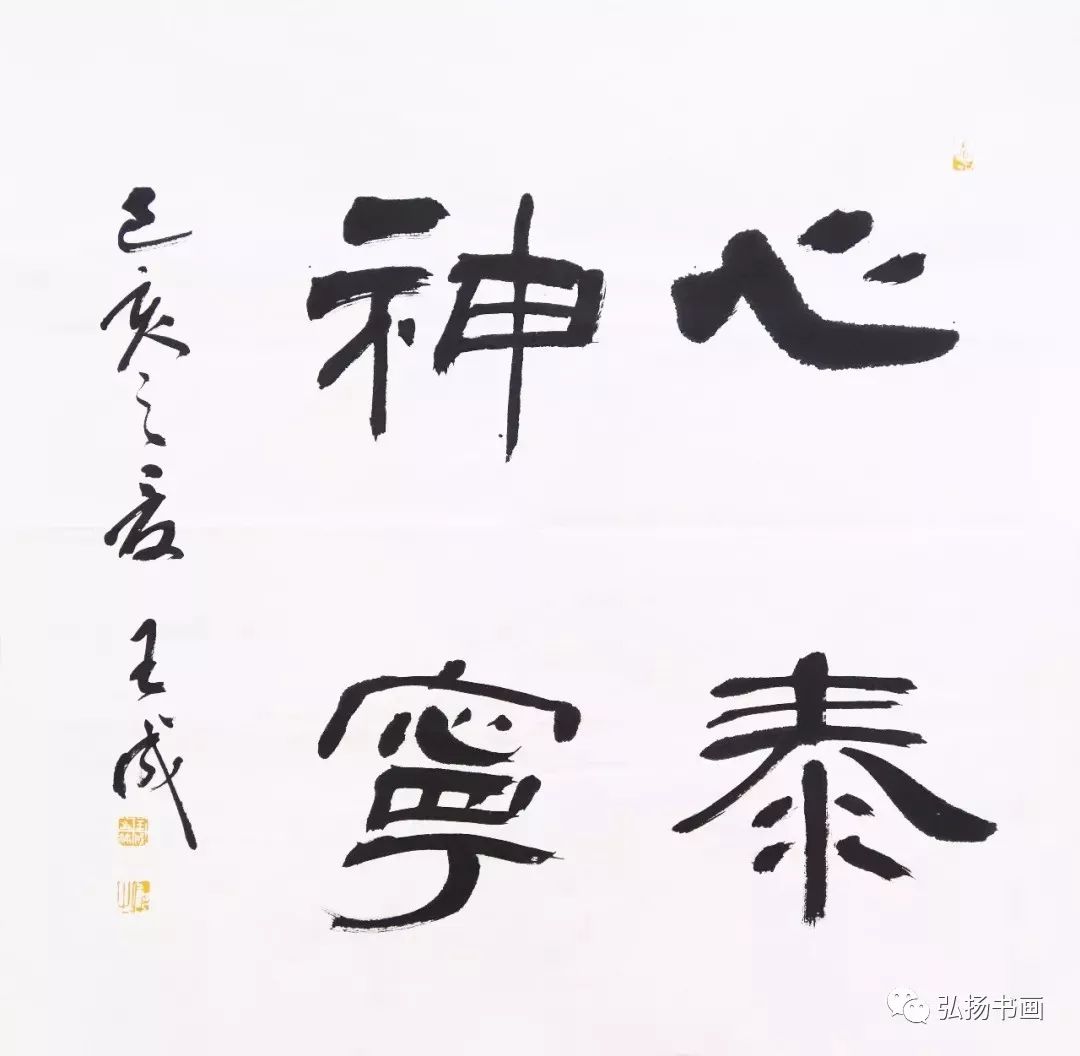 心泰
神寧
己亥之夏 王成
弘扬书画